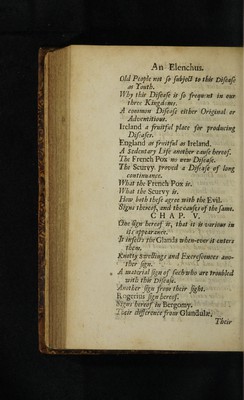 An Elenchus.
Old People not so subject to this Disease
as Youth.
Why this Disease is so frequent in our
three Kingdoms.
A common Disease either Original or
Adventitious.
Ireland a fruitful place for producing
Diseases.
England as fruitful as Ireland.
A Sedentary Life another cause hereof.
The French Pox no new Disease.
The Scurvy proved a Disease of long
continuance.
What the French Pox is.
What the Scurvy is.
How both these agree with the Evil.
Signs thereof, and the causes of the same.
CHAP. V.
One sign hereof is, that it is various in
its appearance.
It infects the Glands when-ever it enters
them.
Knotty Swellings and Excrescences ano-
ther sign.
A material sign of such who are troubled
with this Disease.
Another sign from their sight.
Rogerius sign hereof.
Signs hereof in Bergomy.
Their difference from Glandulæ,
Their